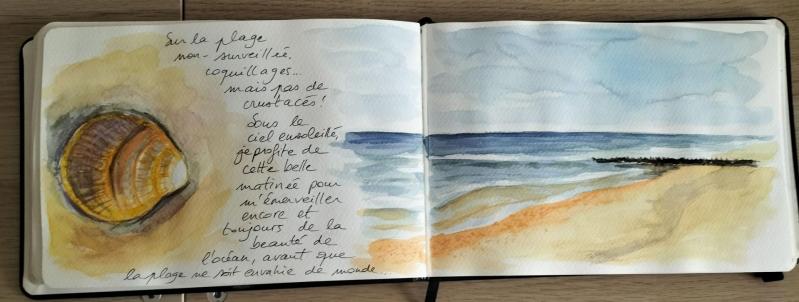 Sur la plage
non-surveillée,
coquillages...
mais pas de
crustacés!
Sous le
ciel ensoleillé,
je profite de
cette belle
matinée pour
m'émerveiller
encore et
toujours de la
beauté de
l'océan, avant que
la plage ne soit envahie de monde...